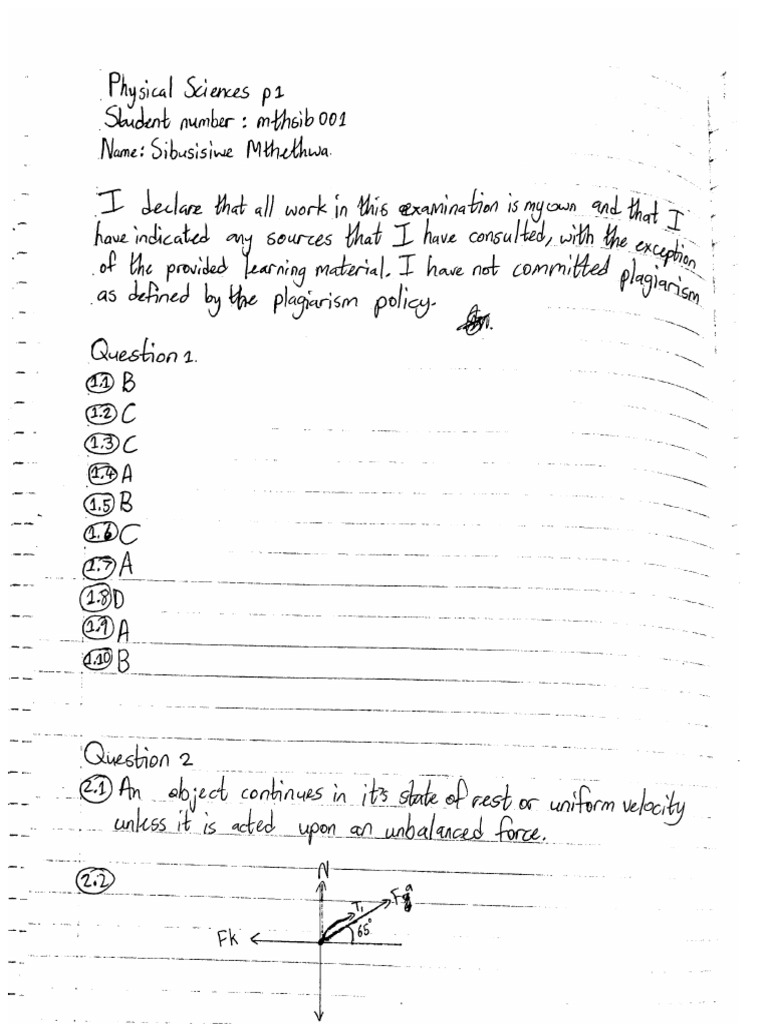 Physical Sciences p1
Student number : mthsib001
Name: Sibusisiwe Mthethwa.
I declare that all work in this examination is my own and that I
have indicated any sources that I have consulted, with the exception
of the provided learning material. I have not committed plagiarism
as defined by the plagiarism policy.
Question 1.
1.1 B
1.2 C
1.3 C
1.4 A
1.5 B
1.6 C
1.7 A
1.8 D
1.9 A
1.10 B
Question 2
2.1 An object continues in it's state of rest or uniform velocity
unless it is acted upon an unbalanced force.
2.2
N
T1
65°
Fk